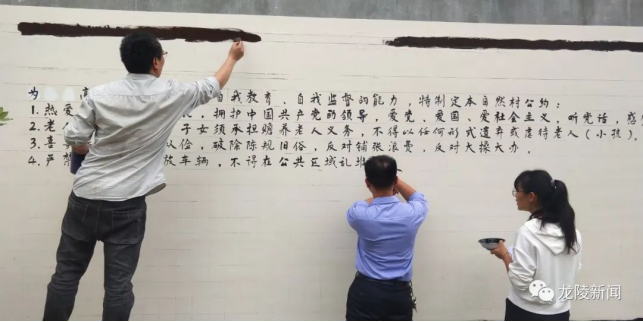 为 高 自我教育、自我监督的能力，特制定本自然村公约：
1.热爱 ，拥护中国共产党的领导，爱党、爱国、爱社会主义，听党话，感
2.老 子女须承担赡养老人义务，不得以任何形式遗弃或虐待老人（小孩）。
3.喜 从俭，破除陈规旧俗，反对铺张浪费，反对大操大办。
4.严禁 放车辆，不得在公共区域乱堆
龙陵新闻